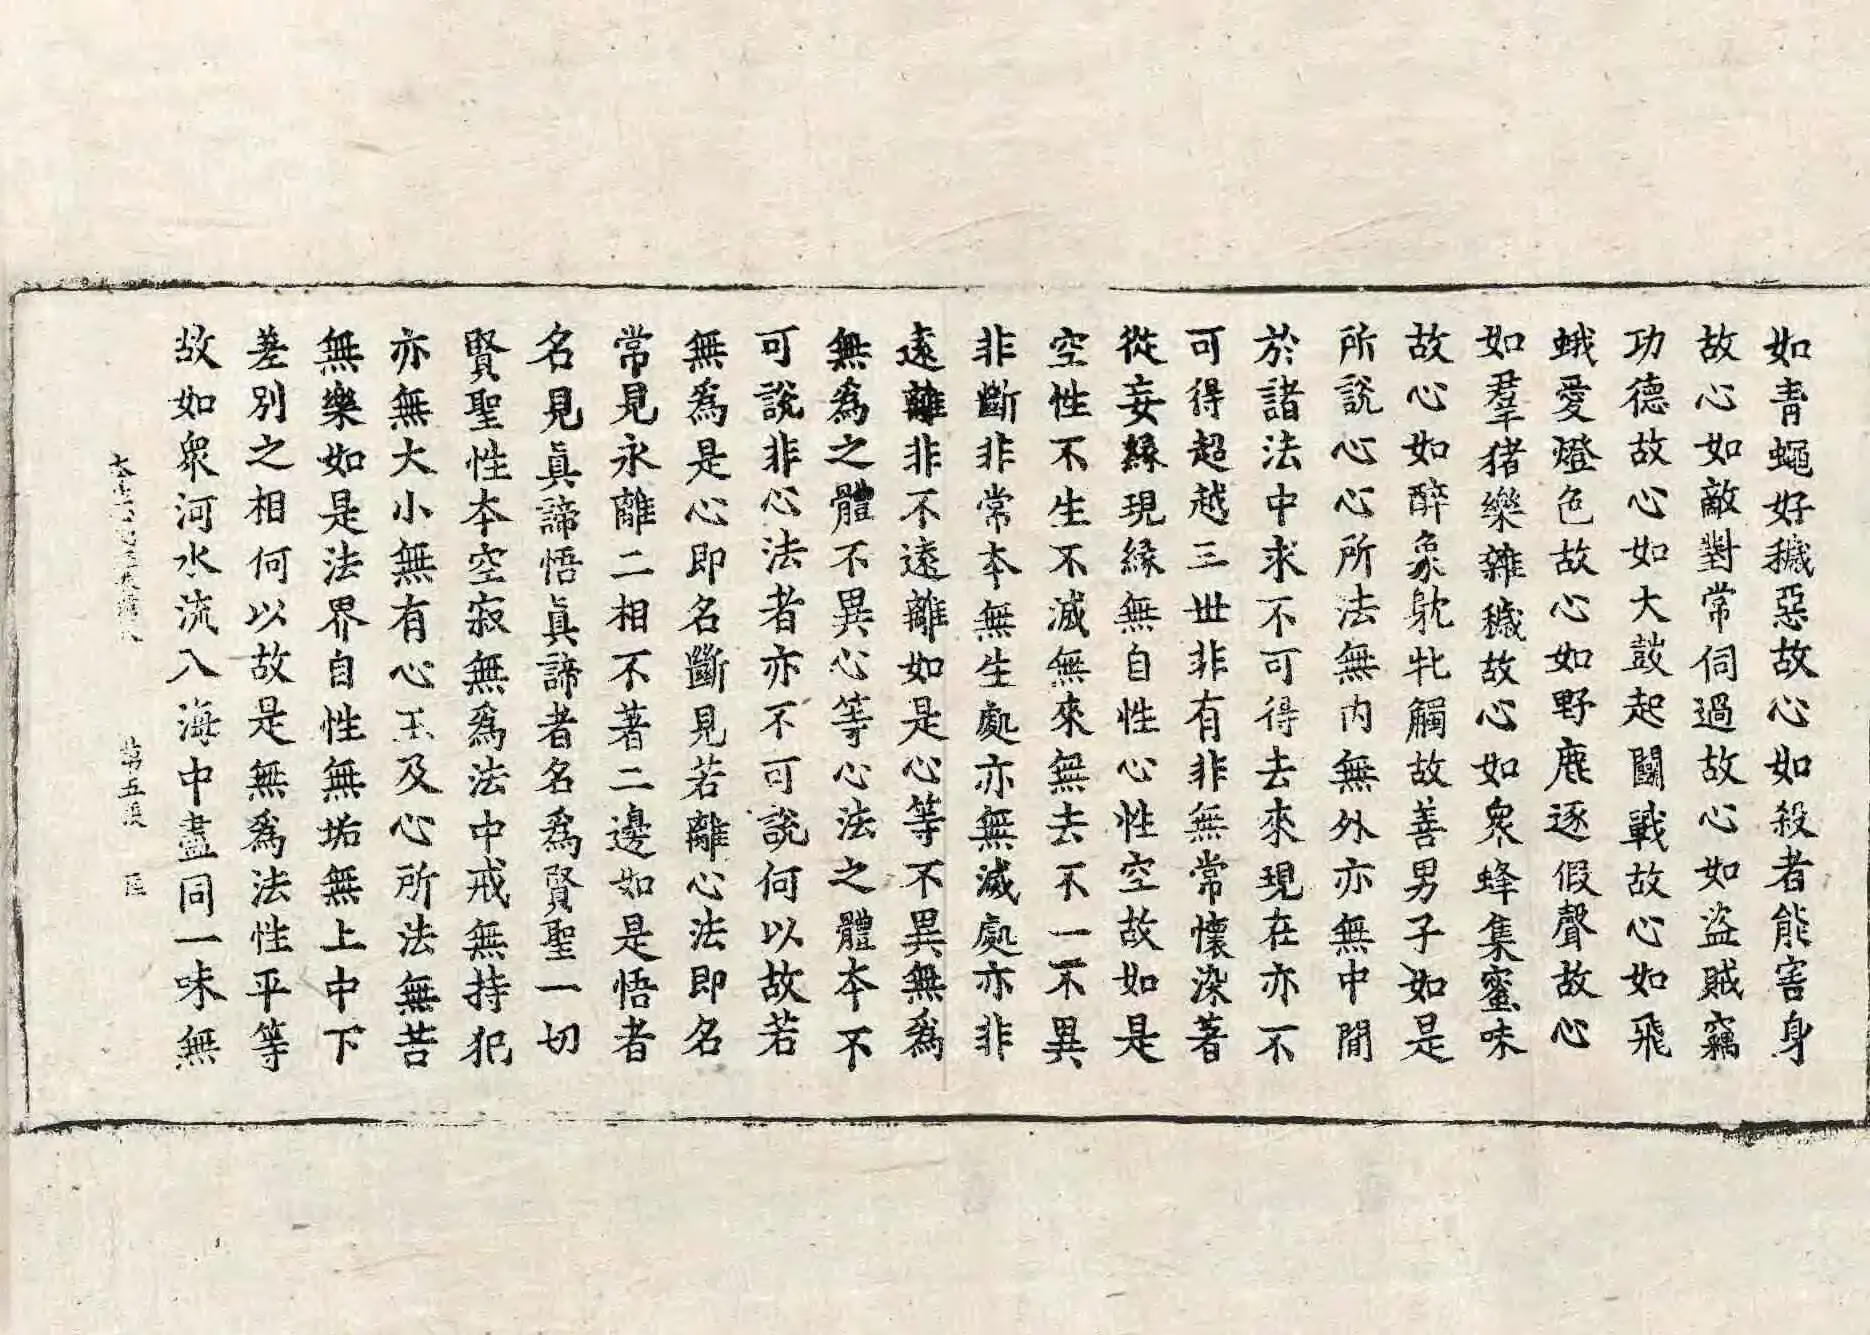 如青蠅好穢惡故心如殺者能害身
故心如敵對常伺過故心如盜賊竊
功德故心如大鼓起鬪戰故心如飛
蛾愛燈色故心如野鹿逐假聲故心
如羣猪樂雜穢故心如衆蜂集蜜味
故心如醉象躭牝觸故善男子如是
所說心心所法無內無外亦無中間
於諸法中求不可得去來現在亦不
可得超越三世非有非無常懷染著
從妄緣現緣無自性心性空故如是
空性不生不滅無來無去不一不異
非斷非常本無生處亦無滅處亦非
遠離非不遠離如是心等不異無爲
無爲之體不異心等心法之體本不
可說非心法者亦不可說何以故若
無爲是心即名斷見若離心法即名
常見永離二相不著二邊如是悟者
名見眞諦悟眞諦者名爲賢聖一切
賢聖性本空寂無爲法中戒無持犯
亦無大小無有心王及心所法無苦
無樂如是法界自性無垢無上中下
差別之相何以故是無爲法性平等
故如衆河水流入海中盡同一味無
第五張